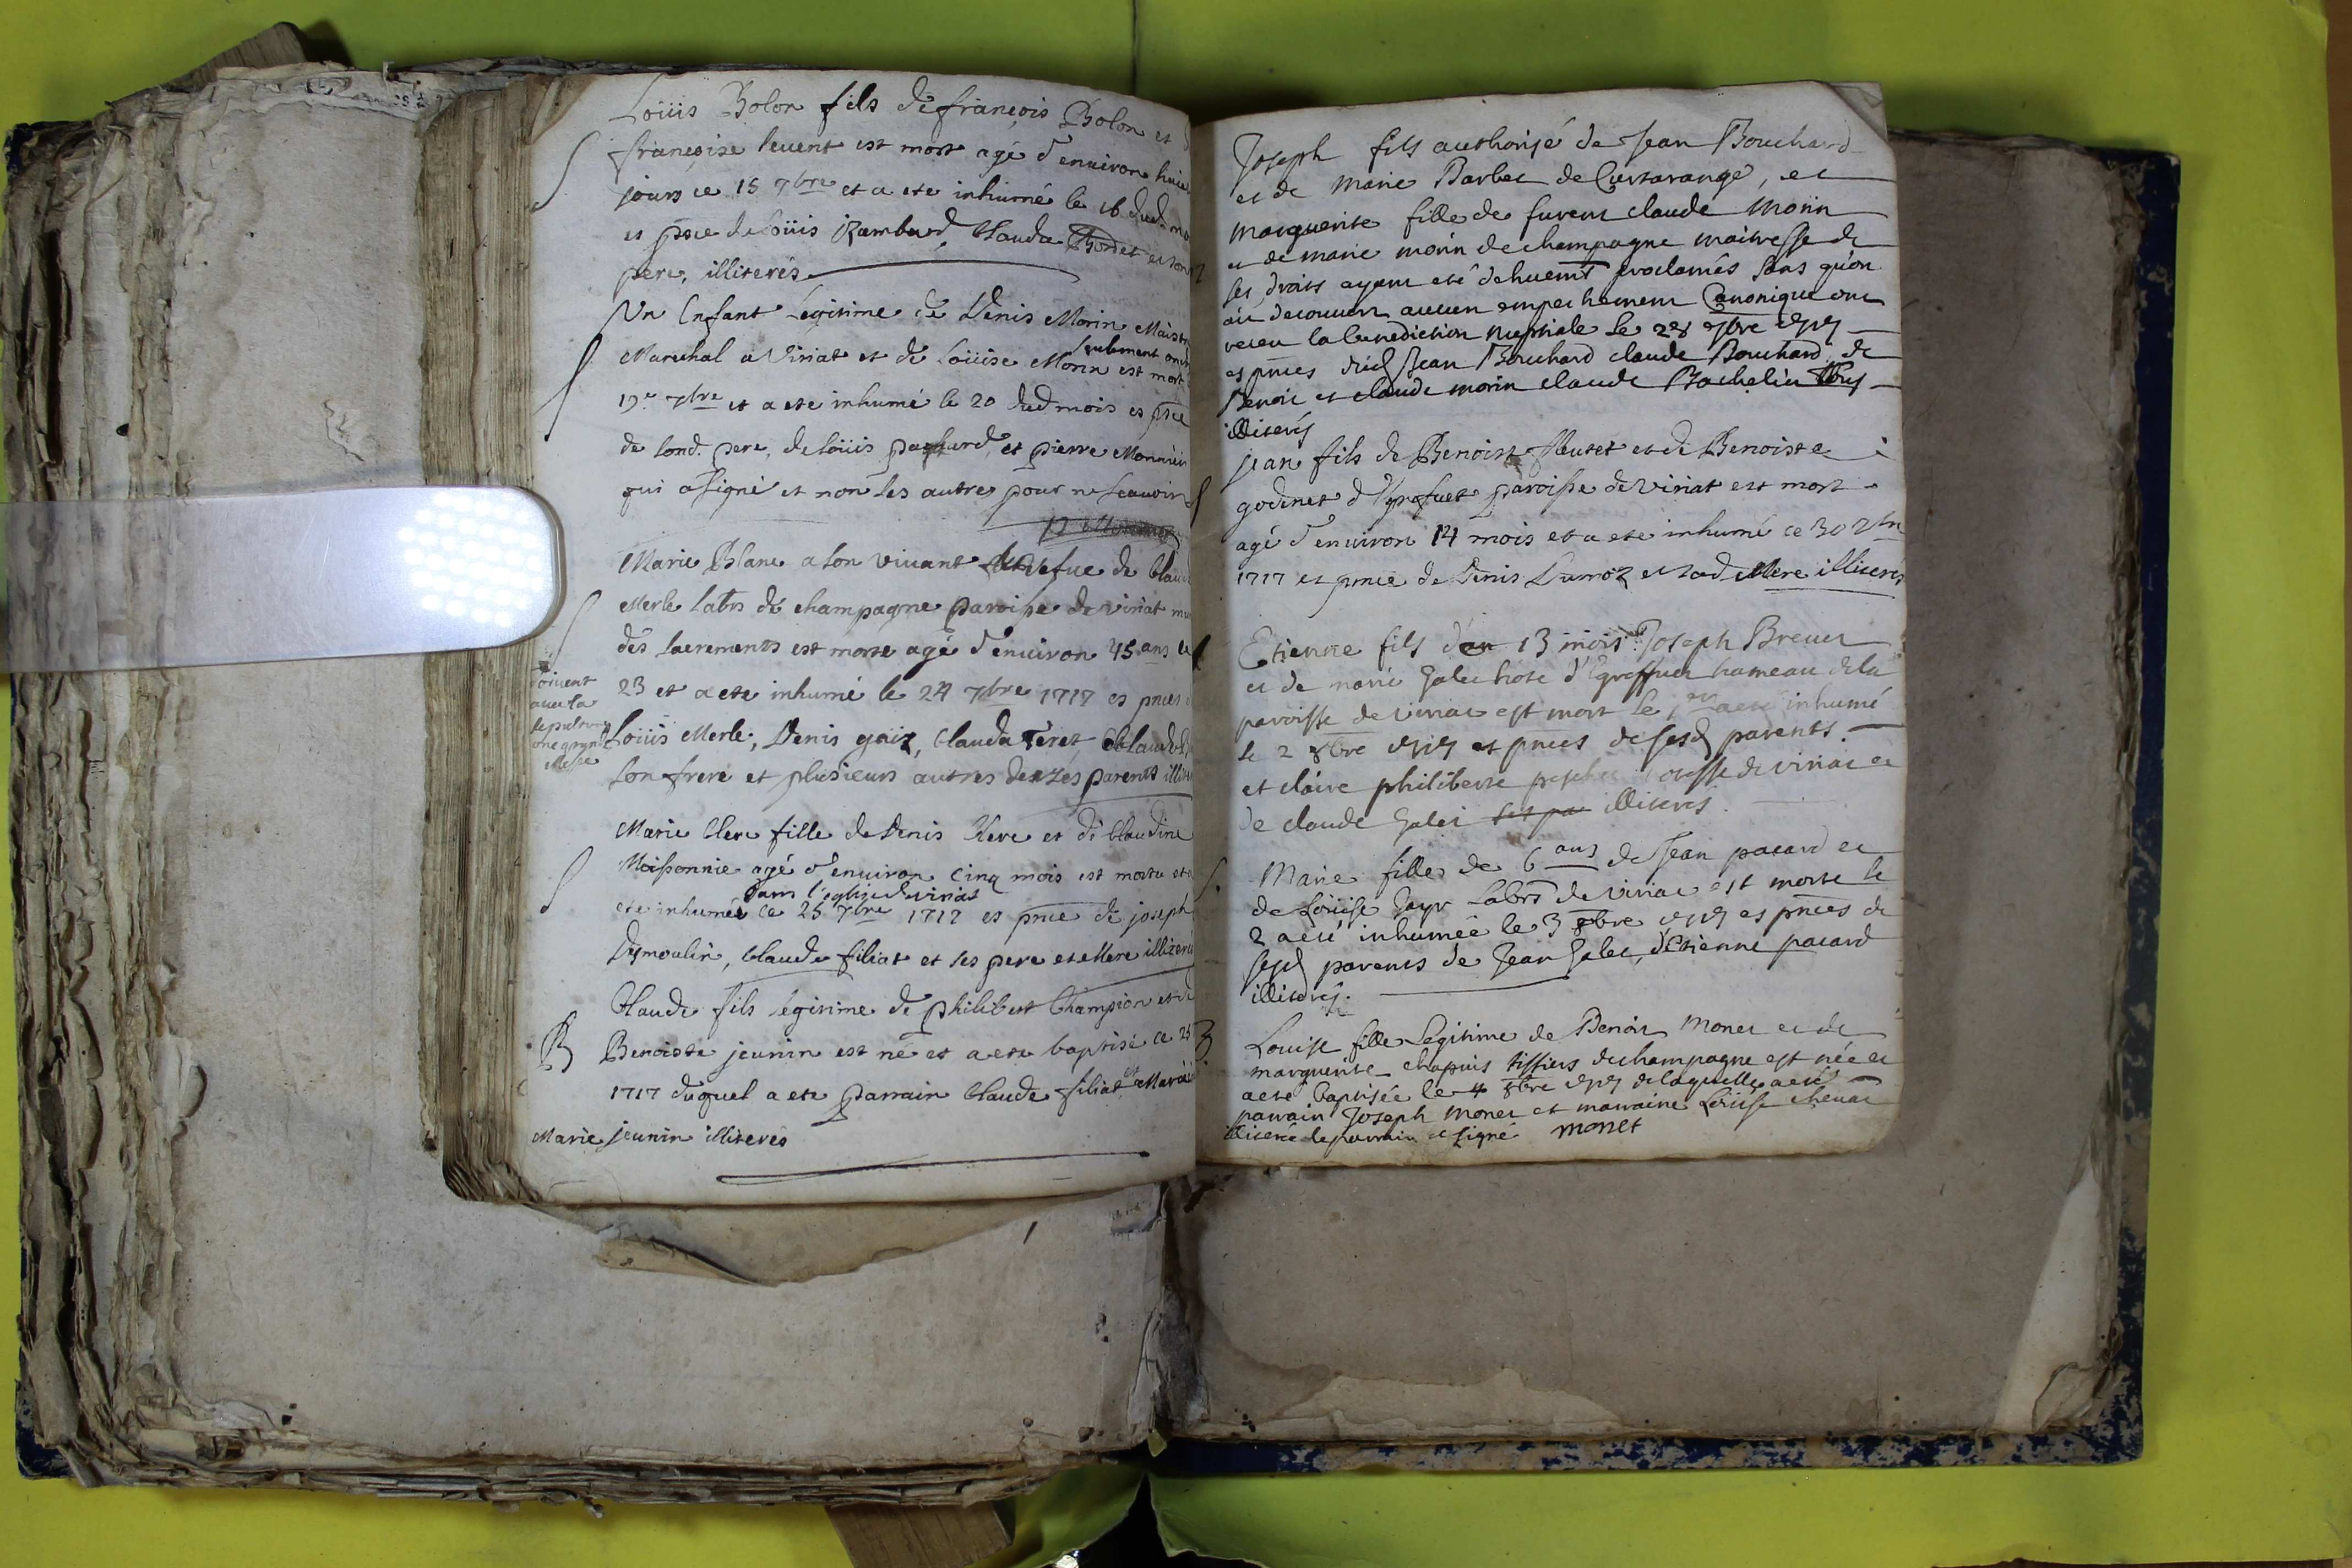 Loüis Bolon fils de françois Bolon et
françoise leuent est mort agé d'enuiron huict
jours ce 15 7bre et a ete inhumé le 16 dud. mo
es pnce de Loüis Rambud, Claude Bordet et son
pere, illiterés
Un Enfant Legitime de Denis Morin Maistre
Marechal a Viriat et de Loüise Morin est mort
seulement
19e 7bre et a ete inhumé le 20 dud mois es pnce
de sond. pere, de Loüis pachurd, et pierre Monnier
qui a signé et non les autres pour ne scauoir
Marie Blanc a son viuant vefue de Claud
Merle labrs de champagne paroisse de viriat
des sacrements est morte agé d'enuiron 45 ans le
23 et a ete inhumé le 24 7bre 1717 es pnces
Loüis Merle, Denis goix, Claude Teret
son frere et plusieurs autres de ses parents illit
Marie Clerc fille de Denis Clerc et de Claudine
Moissonnie agé d'enuiron Cinq mois est morte et
dans l'eglise de viriat
ete inhumée le 25 7bre 1717 es pnce de joseph
Desmoulin, Claude filiat et ses pere et Mere illiterés
Claude fils legitime de philibert Champion et d
B Benoiste jeunin est né et a ete baptisé ce 25
1717 duquel a ete parrain Claude filiat et
Marie jeunin illiterés
Joseph fils authorisé de Jean Bouchard
et de Marie Barbet de Curtarange, et
Marguerite fille de furent claude Morin
et de marie morin de champagne maitresse de
ses droits ayant eté dehuemt proclamés sans qu'on
ait decouuert aucun empechement Canonique ont
receu la benediction nuptiale le 28 7bre 1717
es pnces dud Jean Bouchard claude Bouchard de
Benoit et claude morin claude Bachelin tous
illiterés
jean fils de Benoist fleutet et de Benoiste
godinet d'Egrefuet paroisse de viriat est mort
agé d'enuiron 14 mois et a ete inhumé ce 30 7bre
1717 es pnce de Denis Lurroz et sad. Mere illiterés
Etienne fils d'an 13 mois de Joseph Breuet
et de marie Galet hote d'Egreffuet hameau de la
paroisse de viriat est mort le et a eté inhumé
le 2 8bre 1717 es pnces de sesd parents
et claire philiberte de viriat et
de claude Galet illiterés.
Marie fille de 6 ans de Jean pacard et
de Loüise Labrs de viriat est morte le
2 a eté inhumée le 3 8bre 1717 es pnces de
sesd parents de Jean Galet, d'Etienne pacard
illiterés.
Louise fille Legitime de Benoit Monet et de
marguerite chapuis tissiers de champagne est née et
a ete baptisée le 4 8bre 1717 de laquelle a eté
parrain Joseph Monet et marraine Loüise cheuat
illiterée le parrain a signé monet